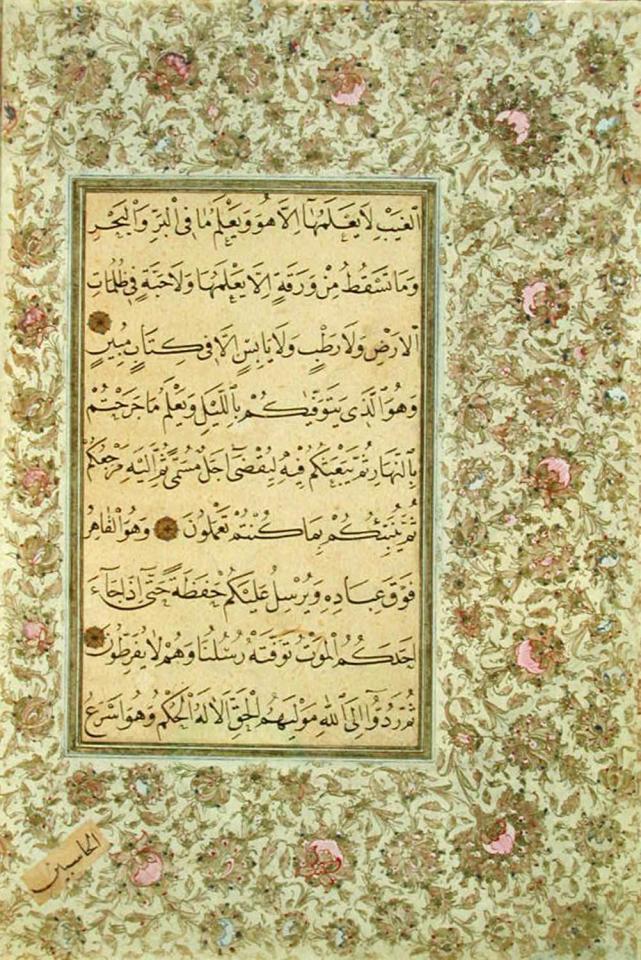 الغَيْبِ لَا يَعْلَمُهَا إِلَّا هُوَ وَيَعْلَمُ مَا فِي الْبَرِّ وَالْبَحْرِ
وَمَا تَسْقُطُ مِنْ وَرَقَةٍ إِلَّا يَعْلَمُهَا وَلَا حَبَّةٍ فِي ظُلُمَاتِ
الْأَرْضِ وَلَا رَطْبٍ وَلَا يَابِسٍ إِلَّا فِي كِتَابٍ مُبِينٍ
وَهُوَ الَّذِي يَتَوَفّٰيكُمْ بِاللَّيْلِ وَيَعْلَمُ مَا جَرَحْتُمْ
بِالنَّهَارِ ثُمَّ يَبْعَثُكُمْ فِيهِ لِيُقْضَى أَجَلٌ مُسَمًّى ثُمَّ إِلَيْهِ مَرْجِعُكُمْ
ثُمَّ يُنَبِّئُكُمْ بِمَا كُنْتُمْ تَعْمَلُونَ وَهُوَ الْقَاهِرُ
فَوْقَ عِبَادِهِ وَيُرْسِلُ عَلَيْكُمْ حَفَظَةً حَتَّى إِذَا جَاءَ
أَحَدَكُمُ الْمَوْتُ تَوَفَّتْهُ رُسُلُنَا وَهُمْ لَا يُفَرِّطُونَ
ثُمَّ رُدُّوا إِلَى اللّٰهِ مَوْلٰيهُمُ الْحَقِّ أَلَا لَهُ الْحُكْمُ وَهُوَ أَسْرَعُ
الحاسبين